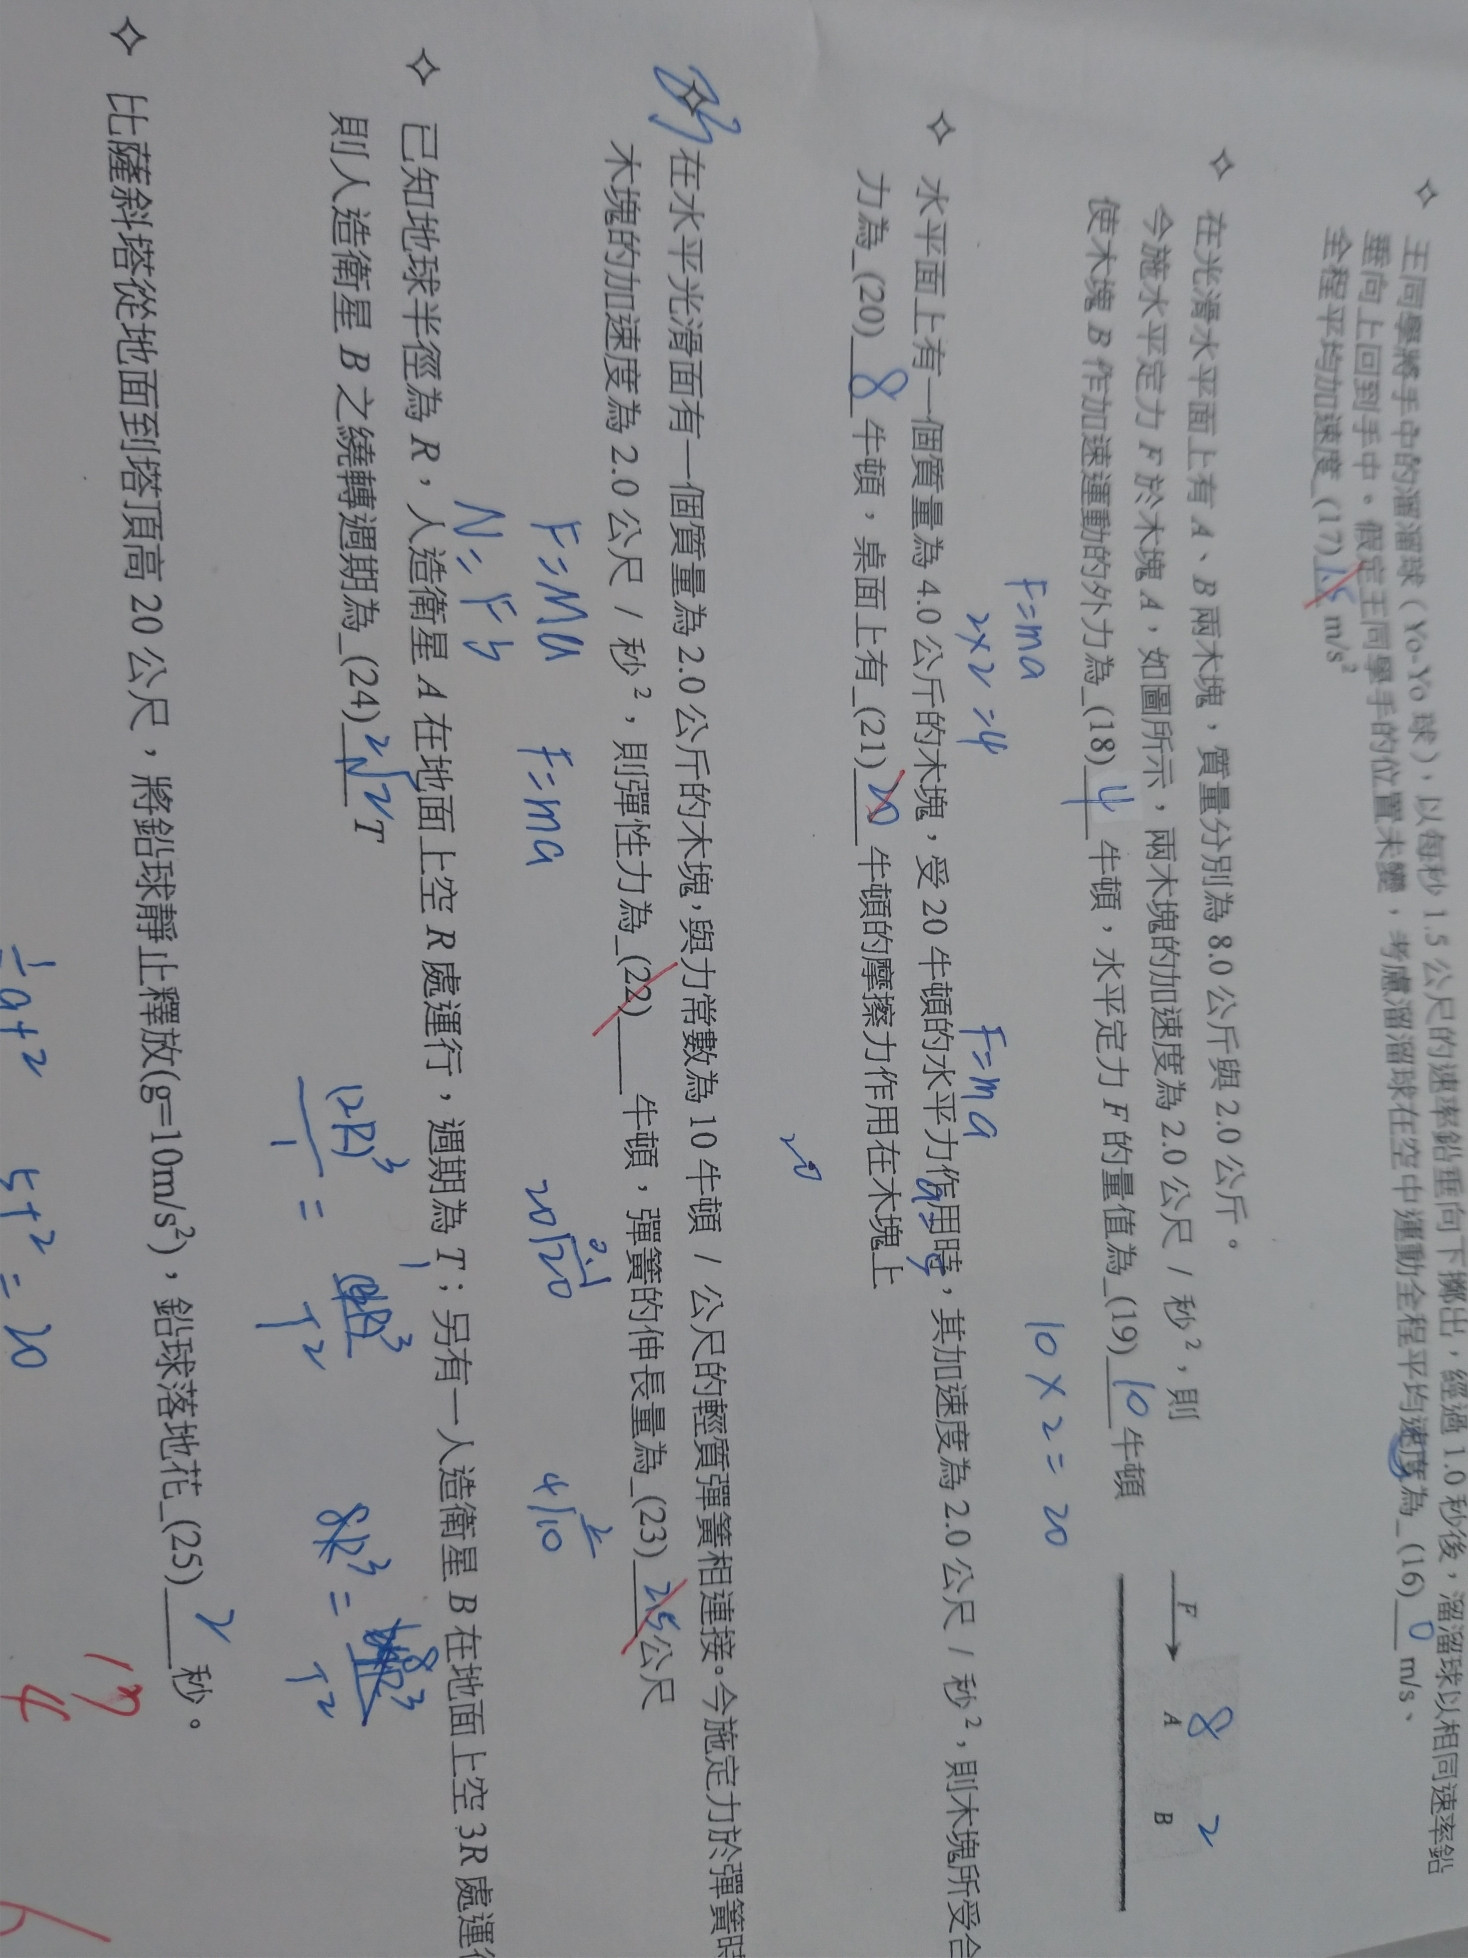 ✧ 王同學將手中的溜溜球(Yo-Yo 球)，以每秒 1.5 公尺的速率鉛垂向下擲出，經過 1.0 秒後，溜溜球以相同速率鉛
垂向上回到手中。假定王同學手的位置未變，考慮溜溜球在空中運動全程平均速度為_(16)__0__ m/s、
全程平均加速度_(17)_1.5_ m/s²
✧ 在光滑水平面上有 A、B 兩木塊，質量分別為 8.0 公斤與 2.0 公斤。
今施水平定力 F 於木塊 A，如圖所示，兩木塊的加速度為 2.0 公尺 / 秒²，則
使木塊 B 作加速運動的外力為_(18)__4__ 牛頓，水平定力 F 的量值為_(19)__10__牛頓
F
8
A
2
B
F=ma
2×2=4
10×2=20
✧ 水平面上有一個質量為 4.0 公斤的木塊，受 20 牛頓的水平力作用時，其加速度為 2.0 公尺 / 秒²，則木塊所受合
F=ma
力為_(20)__8__牛頓，桌面上有_(21)__20__牛頓的摩擦力作用在木塊上
20
✧ 在水平光滑面有一個質量為 2.0 公斤的木塊，與力常數為 10 牛頓 / 公尺的輕質彈簧相連接。今施定力於彈簧時
木塊的加速度為 2.0 公尺 / 秒²，則彈性力為_(22)____ 牛頓，彈簧的伸長量為_(23)__2.5__公尺
F=Ma
F=ma
20
4
10
✧ 已知地球半徑為 R，人造衛星 A 在地面上空 R 處運行，週期為 T；另有一人造衛星 B 在地面上空 3R 處運行
則人造衛星 B 之繞轉週期為_(24)__2√2__T
(2R)³
1
=
T²
8R³
=
T²
✧ 比薩斜塔從地面到塔頂高 20 公尺，將鉛球靜止釋放(g=10m/s²)，鉛球落地花_(25)__2__秒。
½at²
5t²=20